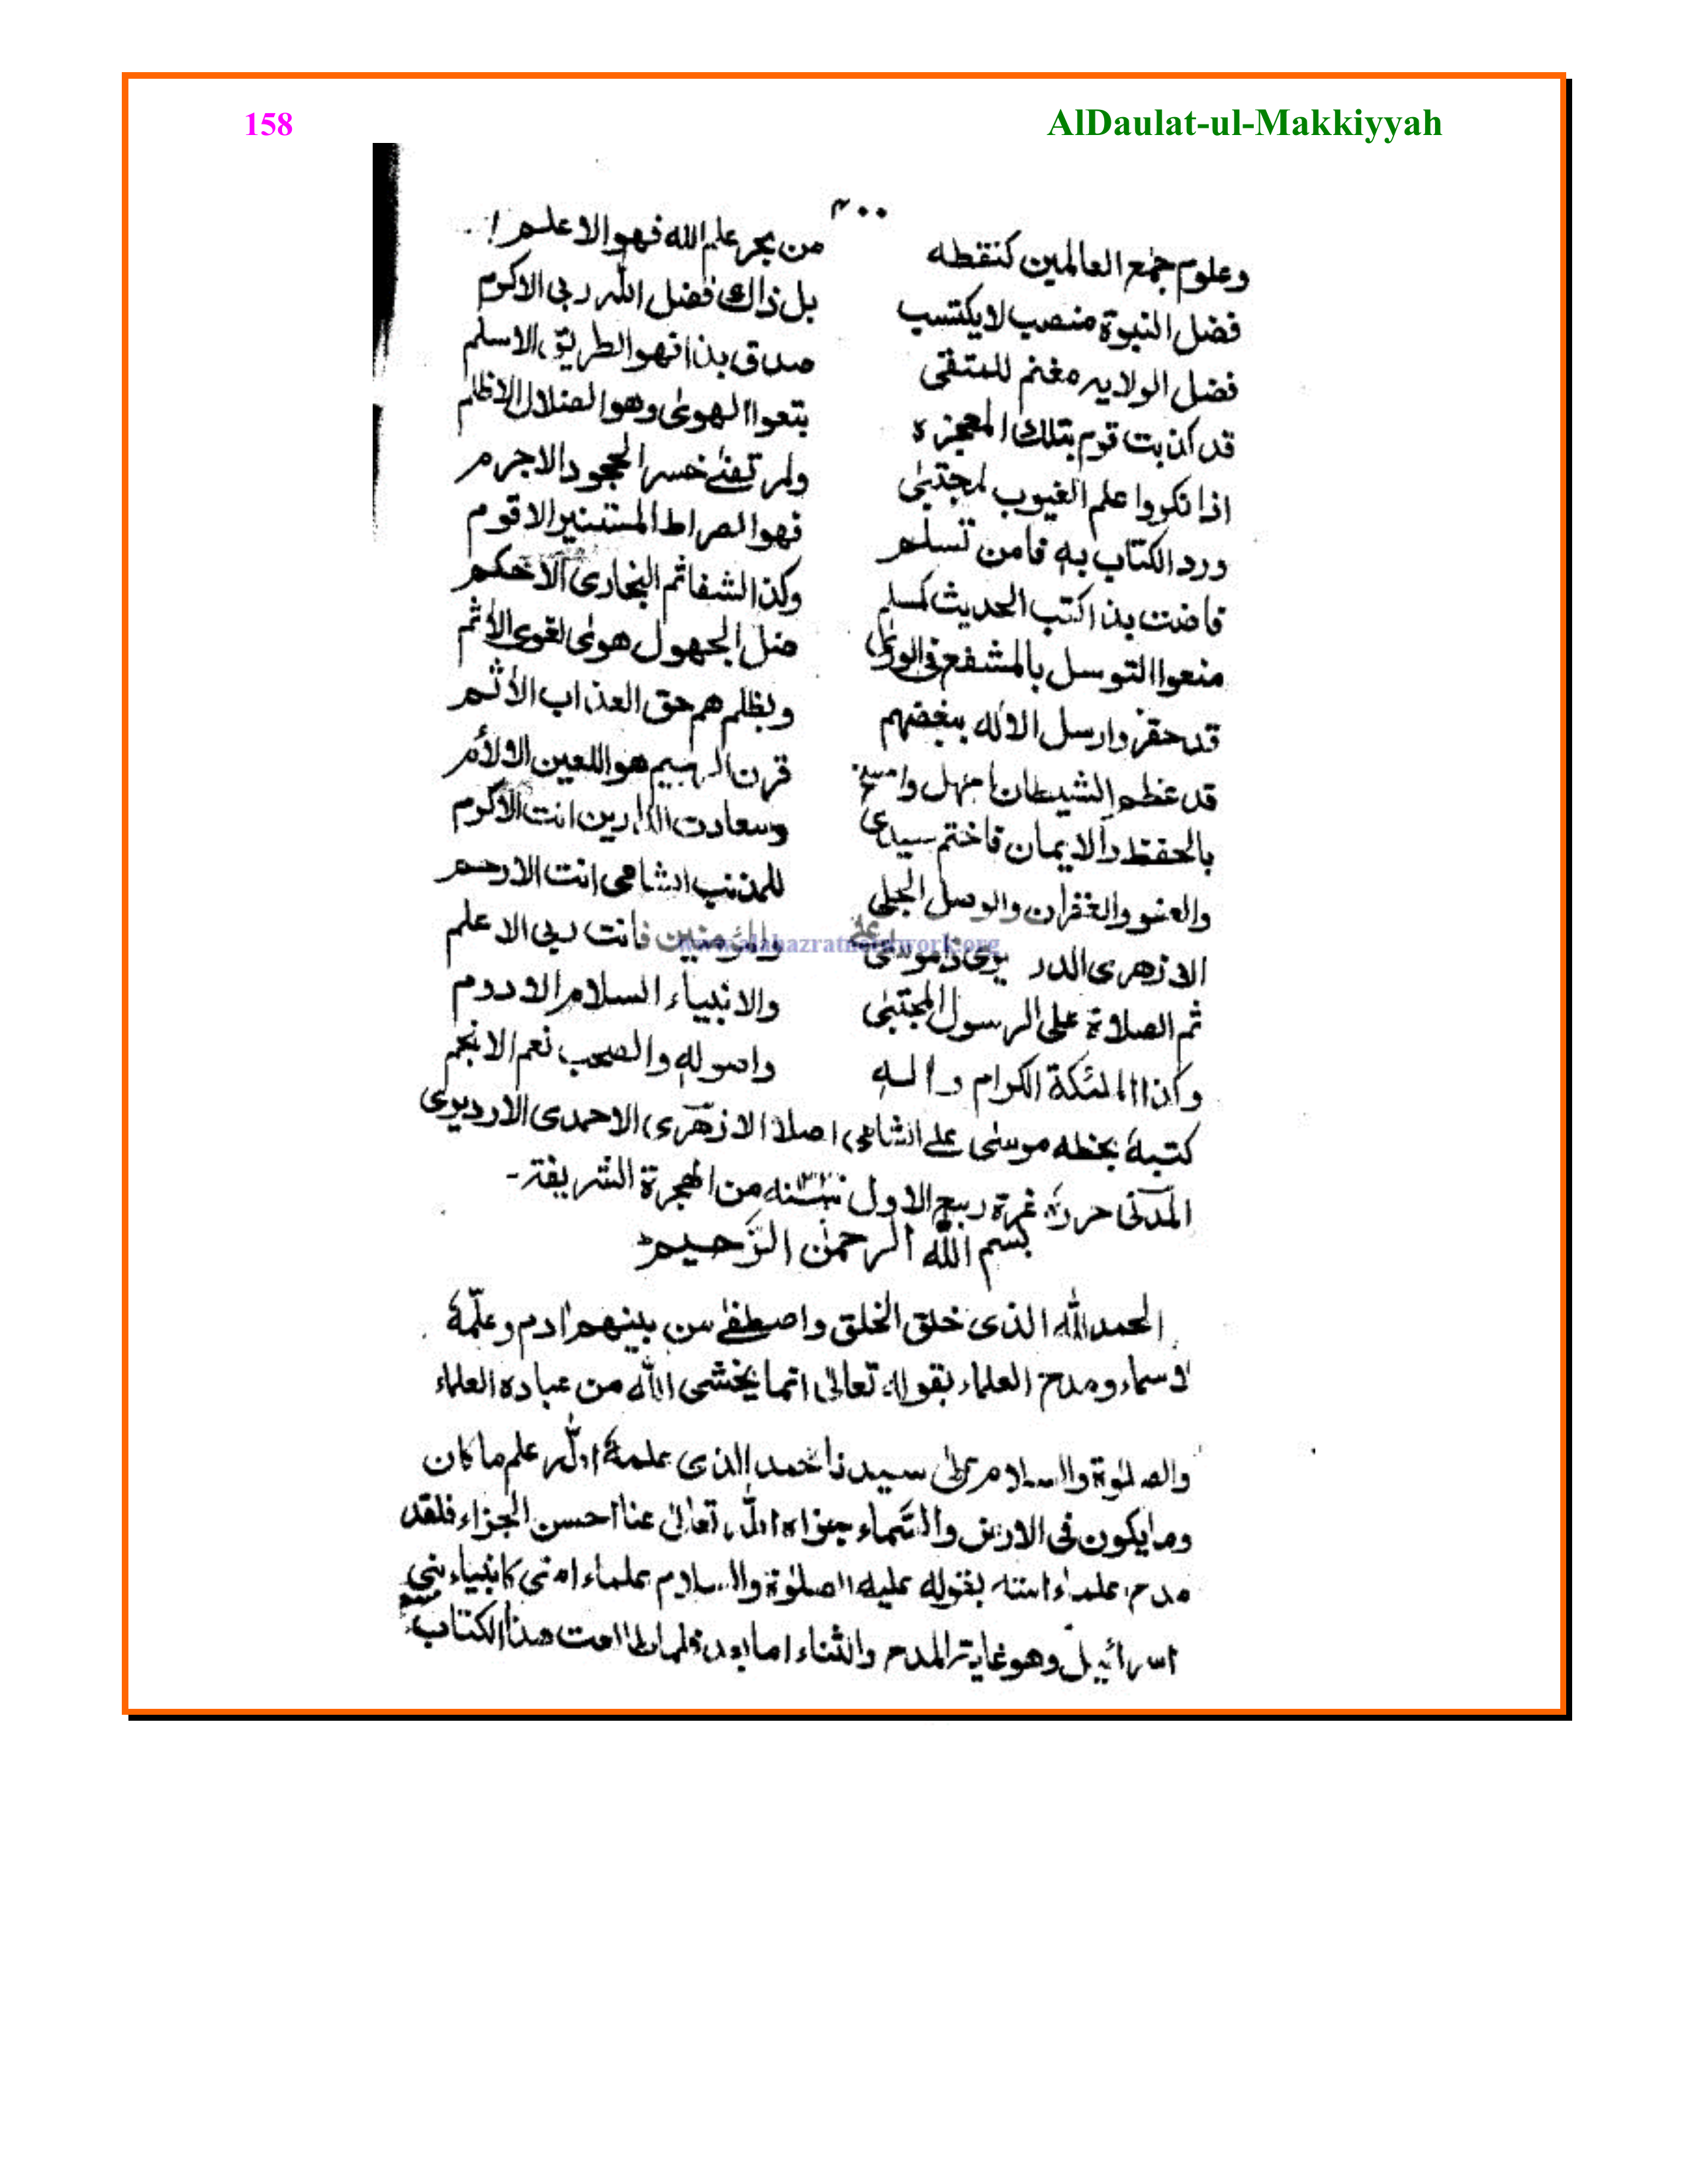 158 AlDaulat-ul-Makkiyyah
۴۰۰
وعلوم جمع العالمين كنقطه من بحر علم الله فهو الاعلم!
فضل النبوة منصب لا يكتسب بل ذاك فضل الله ربي الاكرم
فضل الولايه مغنم للمتقي صدق بذا فهو الطريق الاسلم
قد كذبت قوم بتلك المعجزه بتعوا الهوىٰ وهو الضلال الاظلم
اذا نكروا علم الغيوب لمجتبىٰ ولمرتضىٰ خسر الجحود الاجرم
ورد الكتاب به فامن تسلم فهو الصراط المستنير الاقوم
فاضت بذا كتب الحديث كمسلم وكذا الشفا ثم البخاري الاحكم
منعوا التوسل بالمشفع في الورىٰ ضل الجهول هوىٰ لغوي الاثم
قد حقروا رسل الاله ببغضهم وبظلم هم حق العذاب الأثم
قد عظم الشيطان قرن البهيم هو اللعين الالأم
بالحفظ والايمان فاختم سيدي وسعادت الدارين انت الاكرم
والعفو والغفران والوصل الجلي للمذنب الشامي انت الارحم
الازهري الدر وللمؤمنين فانت ربي الاعلم
www.alahazratnetwork.org
ثم الصلاة على الرسول المجتبىٰ والانبياء السلام الادوم
وكذا الملئكة الكرام واله واصوله والصحب نعم الانجم
كتبهٗ بخطه موسى علي الشامي اصلا الازهري الاحمدي الاردیری
المدني حررهٗ غرة ربيع الاول من الهجرة الشريفة۔
بسم الله الرحمٰن الرّحيم
الحمدلله الذي خلق الخلق واصطفىٰ من بينهم اٰدم وعلّمهٗ
لاسماء ومدح العلماء بقوله تعالىٰ انما يخشى الله من عباده العلماء
والصلوٰة والسلام على سيدنا محمد الذي علمهٗ الله علم ما كان
وما يكون في الارض والسّماء جزاه الله تعالىٰ عنا احسن الجزاء فلقد
مدح علماء امته بقوله عليه الصلوٰة والسلام علماء امتي كانبياء بني
اسرائيل وهو غاية المدح والثناء اما بعد فلما طالعت هذا الكتاب